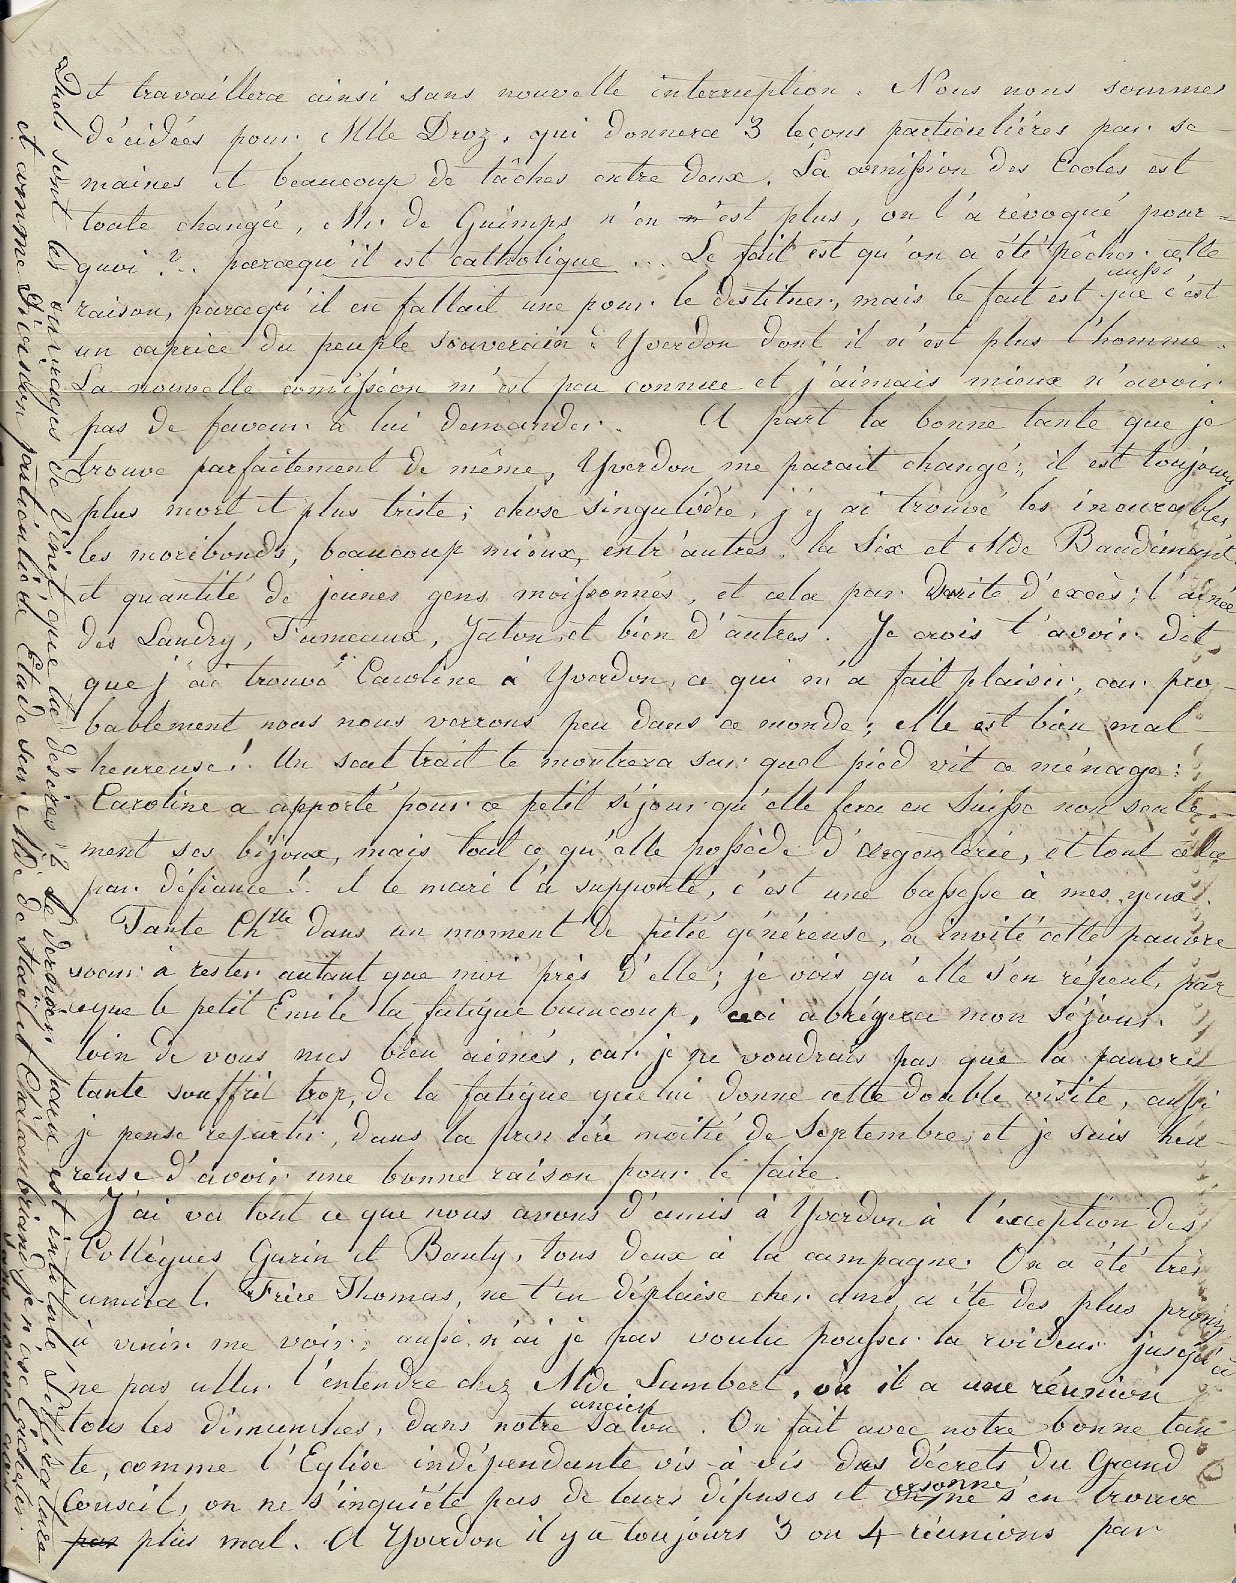 et travaillera ainsi sans nouvelle interruption. Nous nous sommes
décidées pour Mlle Droz, qui donnera 3 leçons particulières par se-
maines et beaucoup de tâches entre deux. La comission des Ecoles est
toute changée, Mr. de Guimps n'en n'est plus, on l'a révoqué pour-
quoi ?.. parcequ'il est catholique ... Le fait est qu'on a été pêcher cette
raison, parcequ'il en fallait une pour le destituer, mais le fait est aussi que c'est
un caprice du peuple souverain d'Yverdon dont il n'est plus l'homme.
La nouvelle comission m'est peu connue et j'aimais mieux n'avoir
pas de faveur à lui demander. A part la bonne tante que je
trouve parfaitement de même, Yverdon me parait changé; il est toujours
plus mort et plus triste; chose singulière, j'y ai trouvé les incurables,
les moribonds, beaucoup mieux, entr'autres, la Six et Mde Baudiment
et quantité de jeunes gens moissonnés, et cela par suite d'excès; l'ainée
des Landry, Jaton et bien d'autres. Je crois t'avoir dit
que j'ai trouvé Caroline à Yverdon, ce qui m'a fait plaisir, car pro-
bablement nous nous verrons peu dans ce monde; elle est bien mal-
heureuse! Un seul trait te montrera sur quel pied vit ce ménage:
Caroline a apporté pour ce petit séjour qu'elle fera en Suisse non seule-
ment ses bijoux, mais tout ce qu'elle possède d'argenterie, et tout cela
par défiance! et le mari l'a supporté, c'est une bassesse à mes yeux.
Tante Chtte dans un moment de pitié généreuse, a invité cette pauvre
soeur à rester autant que moi près d'elle; je vois qu'elle s'en répent, par
ceque le petit Emile la fatigue beaucoup, ceci abrégera mon séjour
loin de vous mes bien aimés, car je ne voudrais pas que la pauvre
tante souffrit trop, de la fatigue que lui donne cette double visite, aussi
je pense repartir, dans la première moitié de Septembre, et je suis heu-
reuse d'avoir une bonne raison pour le faire.
J'ai vu tout ce que nous avons d'amis à Yverdon à l'exception des
Collègues Gurin et Bauty, tous deux à la campagne. On a été très
amical. Frère Thomas, ne t'en déplaise cher ami, a été des plus prompt
à venir me voir, aussi n'ai je pas voulu pousser la roideur jusqu'à
ne pas aller l'entendre chez Mde Lambert, où il a une réunion
tous les dimanches, dans notre ancien salon. On fait avec notre bonne tan
te, comme l'Eglise indépendante vis à vis des décrets du Grand
Conseil, on ne s'inquiète pas de leurs défenses et personne ne s'en trouve
pas plus mal. A Yverdon il y a toujours 3 ou 4 réunions par
Quels sont les ouvrages de Vinet que tu désires? Le dernier paru est intitulé Littérature
et comme Division particulière Etude sur Mde de Staël et Châteaubriand, je n'ose l'acheter
sans nouvel avis